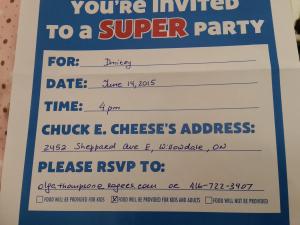 YOU'RE INVITED
TO A SUPER PARTY
FOR: Dmitry
DATE: June 14, 2015
TIME: 4 pm
CHUCK E. CHEESE'S ADDRESS:
2452 Sheppard Ave E, Willowdale, ON
PLEASE RSVP TO:
olgathompson@rogers.com or 416-722-3907
FOOD WILL BE PROVIDED FOR KIDS FOOD WILL BE PROVIDED FOR KIDS AND ADULTS FOOD WILL NOT BE PROVIDED